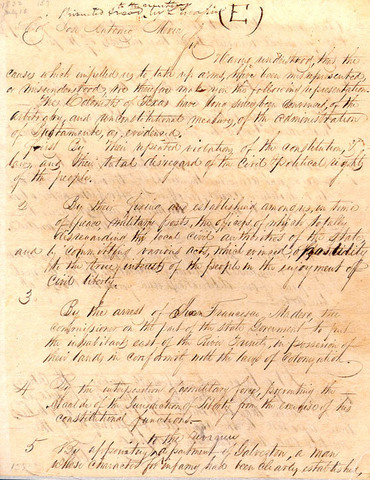 to the
(E)
Don Antonio
Sir
Having understood, that the
causes which impelled us to take up arms, have been misrepresented,
or misunderstood, we therefore make you the following representation.
The Colonists of Texas have long since been convinced, of the
arbitrary, and unconstitutional measures, of the administration
of Bustamente, as evinced.
First By Their repeated violations of the constitution, &
laws, and Their total disregard of the Civil & Political rights
of the people.
2 By their fixing and establishing among us, in time
of Peace, military posts, the officers of which totally
disregarding the local civil authorities of the State
and by committing various acts, which evinced, opposition
to the true interest of the people in the enjoyment of
Civil liberty.
3
By the arrest of Juan Francisco Madero, the
commissioner on the part of the State Government to put
the inhabitants east of the River Trinity, in possession of
their lands, in conformity with the laws of Colonization.
4 By the interposition of a military force, preventing the
Alcalde of the Jurisdiction of Liberty from the exercise of his
constitutional functions.
to the
5 By appointing, department of Galveston, a man
whose character for infamy had been clearly established,